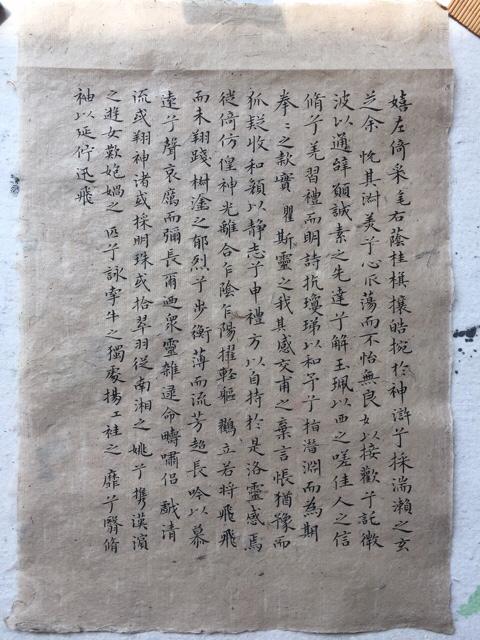 嬉左倚采旄右蔭桂旗攘皓捥於神滸兮採湍瀨之玄
芝余悅其淑美兮心振蕩而不怡無良以接歡兮託微
波以通辭願誠素之先達兮解玉珮以要之嗟佳人之信
脩兮羌習禮而明詩抗瓊珶以和予兮指潛淵而為期
拳之款實瞿斯靈之我其感交甫之棄言悵猶豫而
狐疑收和顏以静志兮申禮方以自持於是洛靈感焉
徙倚仿偟神光離合乍陰乍陽擢輕軀鶴立若將飛飛
而未翔踐椒塗之郁烈兮步衡薄而流芳超長吟以慕
遠兮聲哀厲而彌長爾迺衆靈雜遝命疇嘯侶戲清
流或翔神渚或採明珠或拾翠羽從南湘之姚兮攜漢濱
之遊女歎匏媧之匹兮詠牽牛之獨處揚袿之靡兮翳脩
袖以延佇迅飛